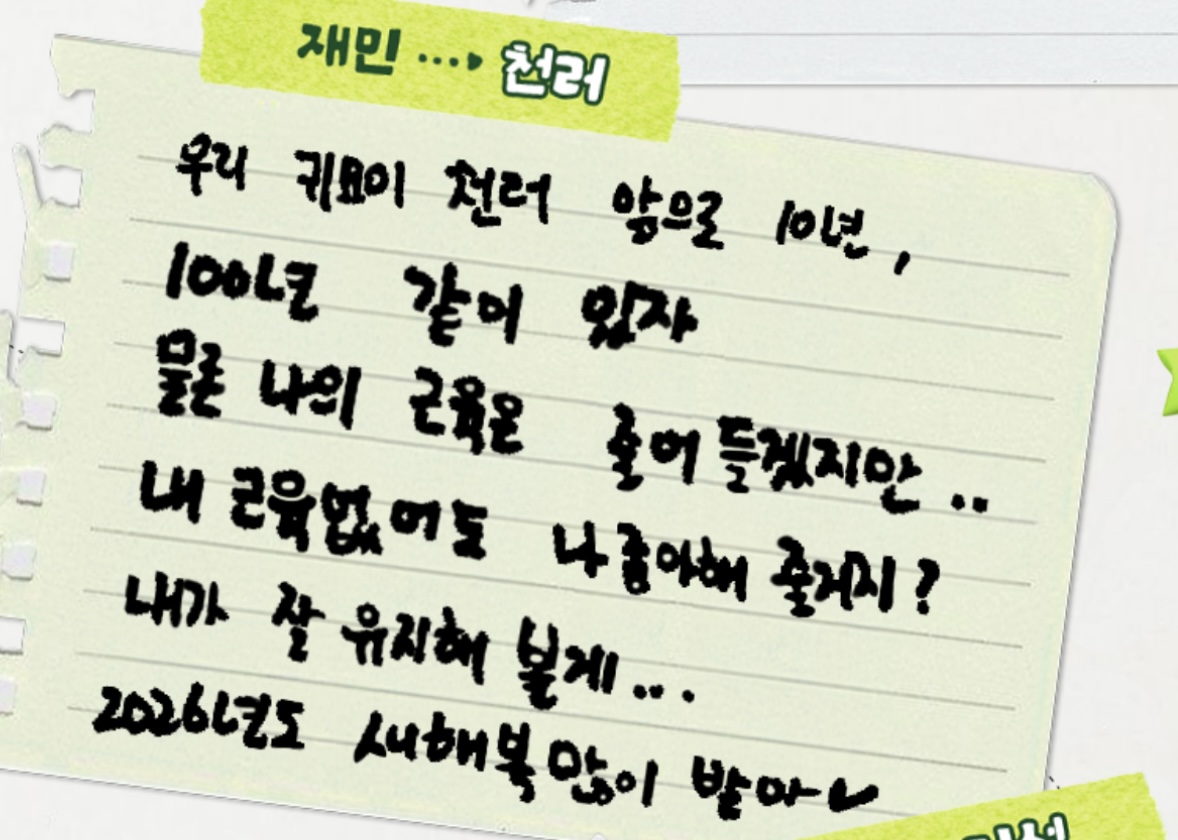 재민 ····▸ 천러
우리 귀요미 천러 앞으로 10년,
100년 같이 있자
물론 나의 근육은 줄어 들겠지만..
내 근육없어도 나 좋아해 줄거지?
내가 잘 유지해 볼게...
2026년도 새해복 많이 받아~